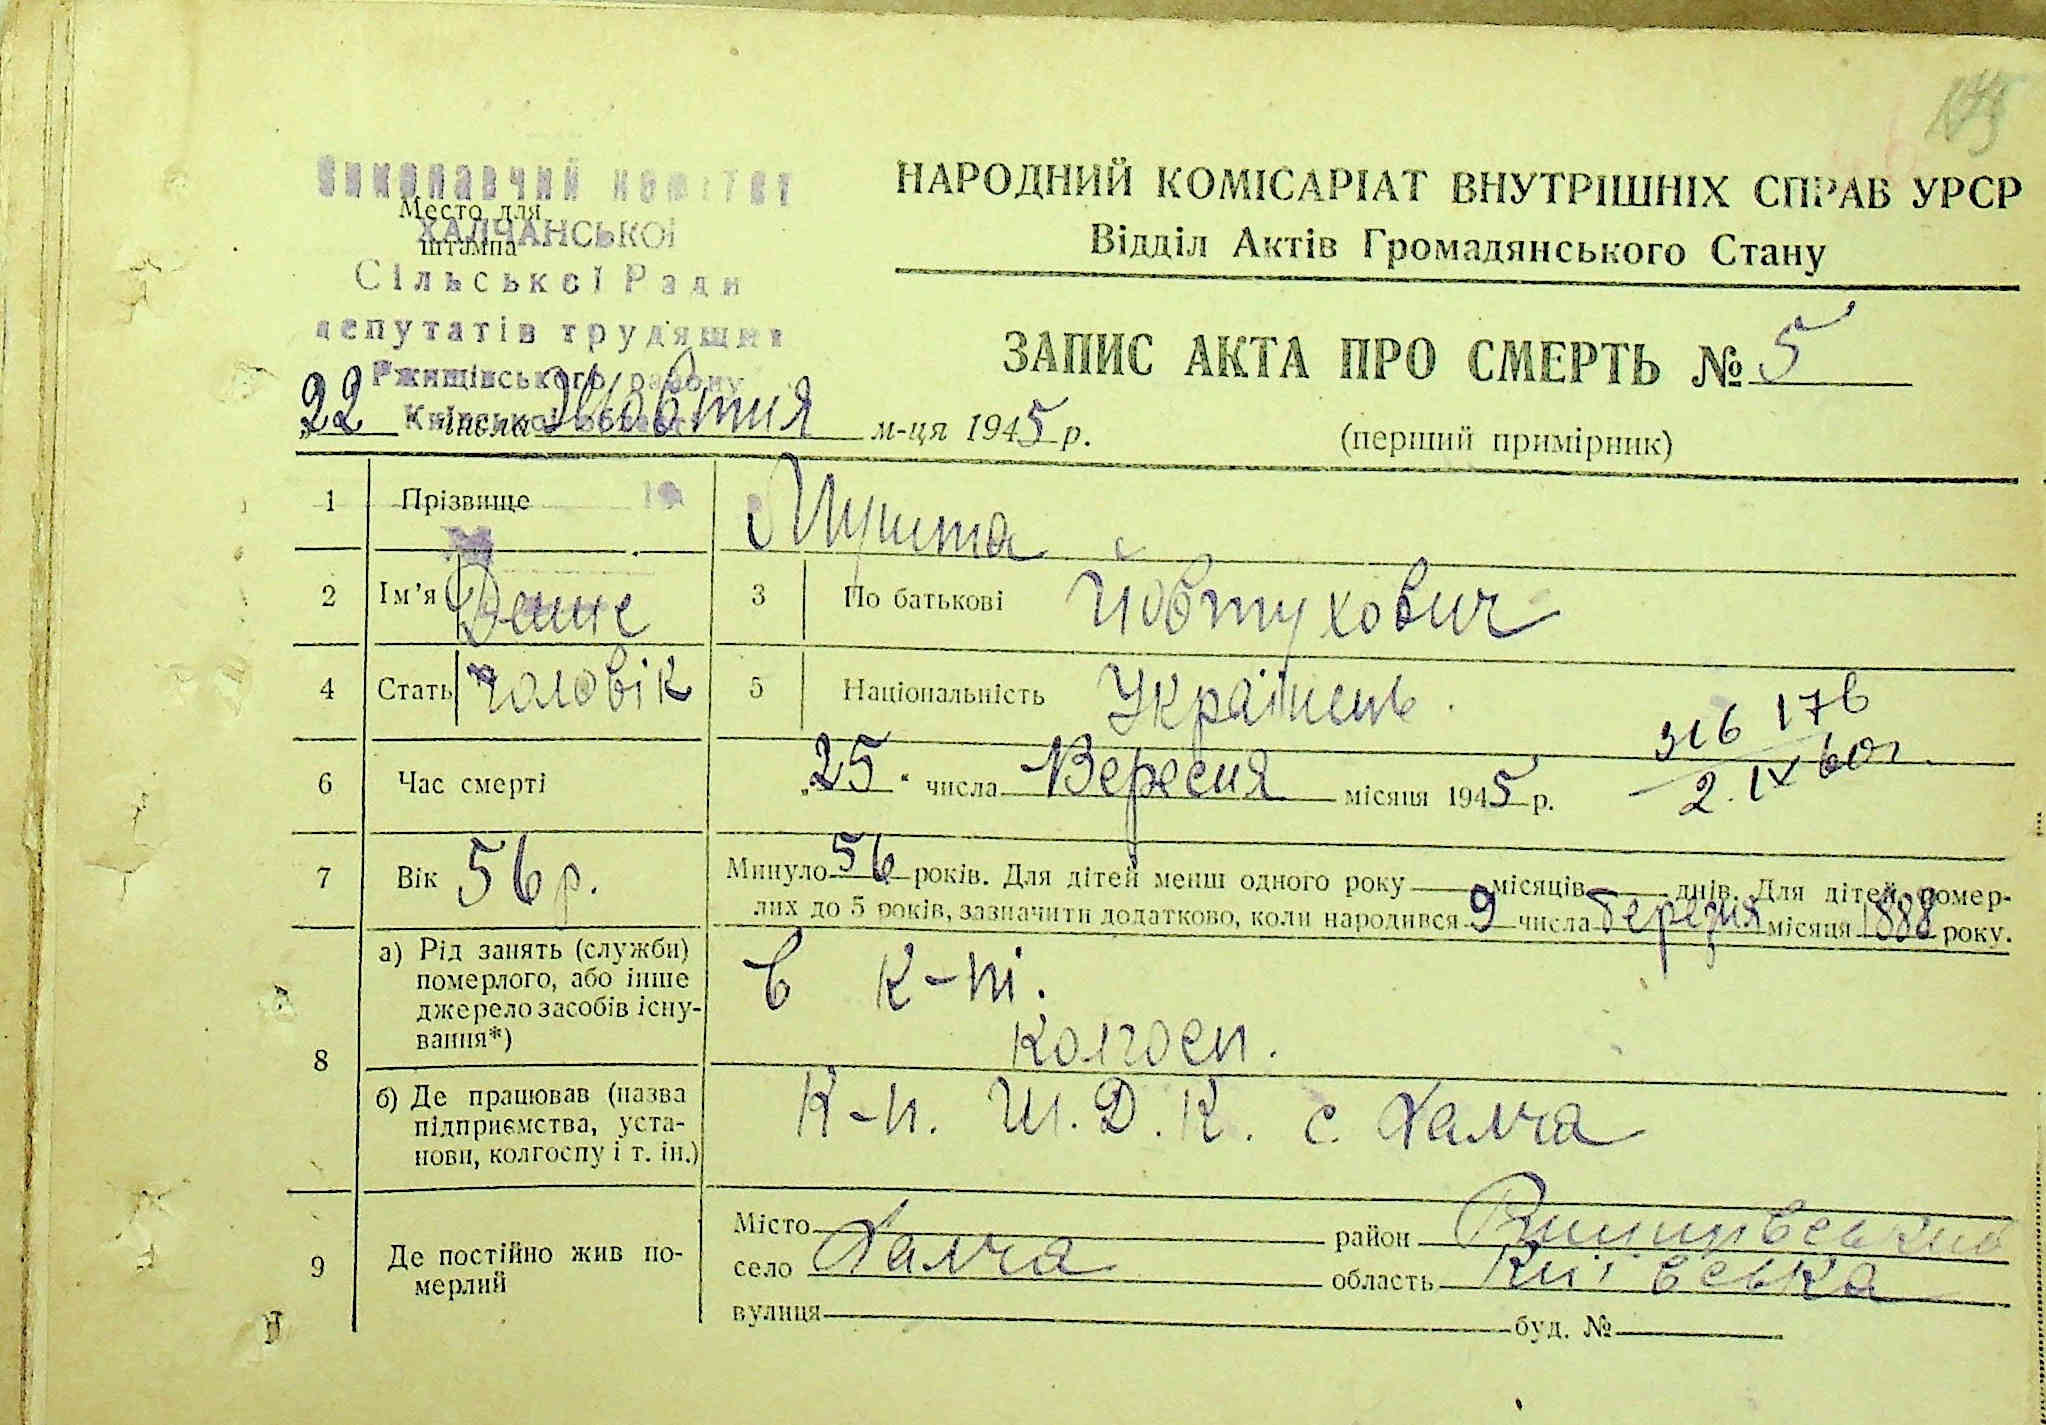 Виконавчий комітет
Место для
штампа
ХАЛЧАНСЬКОЇ
Сільської Ради
депутатів трудящих
Ржищівського району
Київської області
145
НАРОДНИЙ КОМІСАРІАТ ВНУТРІШНІХ СПРАВ УРСР
Відділ Актів Громадянського Стану
ЗАПИС АКТА ПРО СМЕРТЬ № 5
"22 числа Жовтня м-ця 1945 р.
(перший примірник)
1 Прізвище 19 Мушта
2 Ім'я 3 По батькові Йовтухович
4 Стать чоловік 5 Національність Українець.
316 176
2. IX 60г
6 Час смерті "25" числа Вересня місяця 1945 р.
7 Вік 56 р. Минуло 56 років. Для дітей менш одного року місяців днів. Для дітей, помер-
лих до 5 років, зазначити додатково, коли народився 9 числа березня місяця 1888 року.
8 а) Рід занять (служби)
померлого, або інше
джерело засобів існу-
вання*)
в к-пі.
колгосп.
б) Де працював (назва
підприємства, уста-
нови, колгоспу і т. ін.)
К-п. Ш. Д. К. с. Халча
9 Де постійно жив по-
мерлий
Місто район
село Халча область Київська
вулиця буд. №